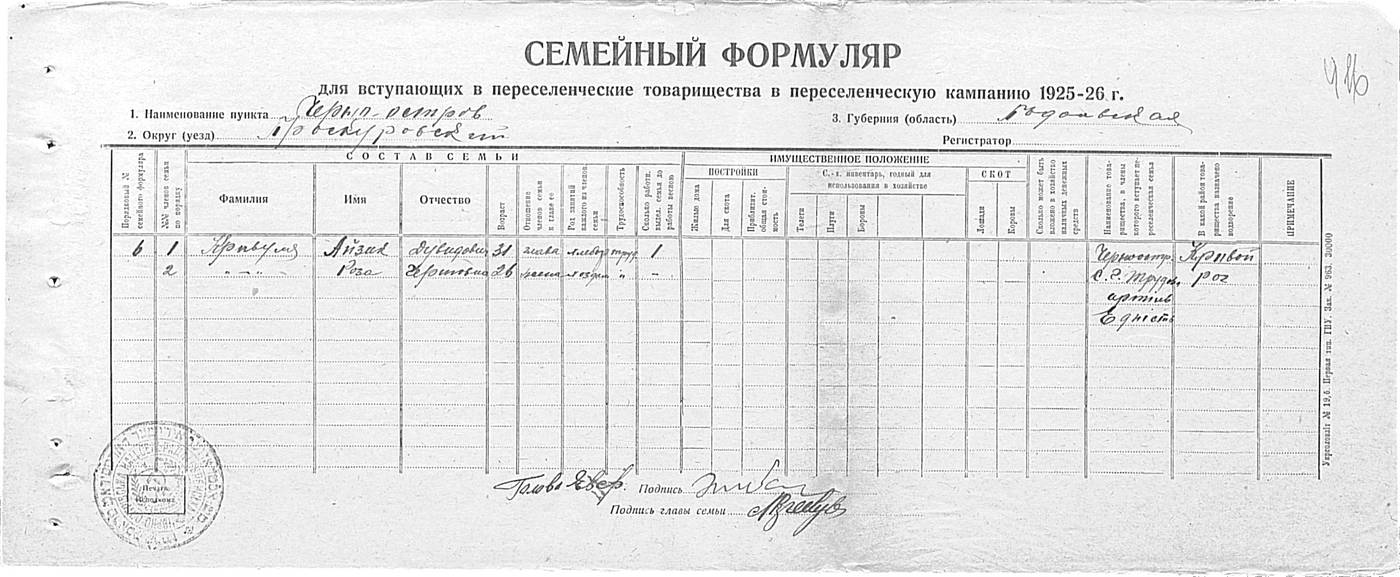 СЕМЕЙНЫЙ ФОРМУЛЯР
для вступающих в переселенческие товарищества в переселенческую кампанию 1925-26 г.
1. Наименование пункта Черн-остров
3. Губерния (область) Подольская
2. Округ (уезд) Проскуровский
Регистратор
Порядковый № семейного формуляра
№№ членов семьи по порядку
СОСТАВ СЕМЬИ
Фамилия
Имя
Отчество
Возраст
Отношение членов семьи к главе ее
Род занятий каждого из членов семьи
Трудоспособность
Сколько работн. выдел. семья до работы весною
ИМУЩЕСТВЕННОЕ ПОЛОЖЕНИЕ
ПОСТРОЙКИ
Жилью дома
Для скота
Приблизит. общая стоимость
С.-х. инвентарь, годный для использования в хозяйстве
Телеги
Плуги
Бороны
СКОТ
Лошади
Коровы
Сколько может быть вложено в хозяйство наличных денежных средств
Наименование товарищества, в члены которого вступает переселенческая семья
В какой район товарищества назначено водворение
ПРИМЕЧАНИЕ
6 1 Кривуля Айзик Дувидович 31 глава хлебор труд 1 Черноостр. Кривой
2 " " " Роза 26 жена " - С.Г. Трудов. рог
артиль
Едність
Печать
Исполкома
Голова Подпись
Подпись главы семьи
Зак. № 963 30000
Первая тип. ГПУ.